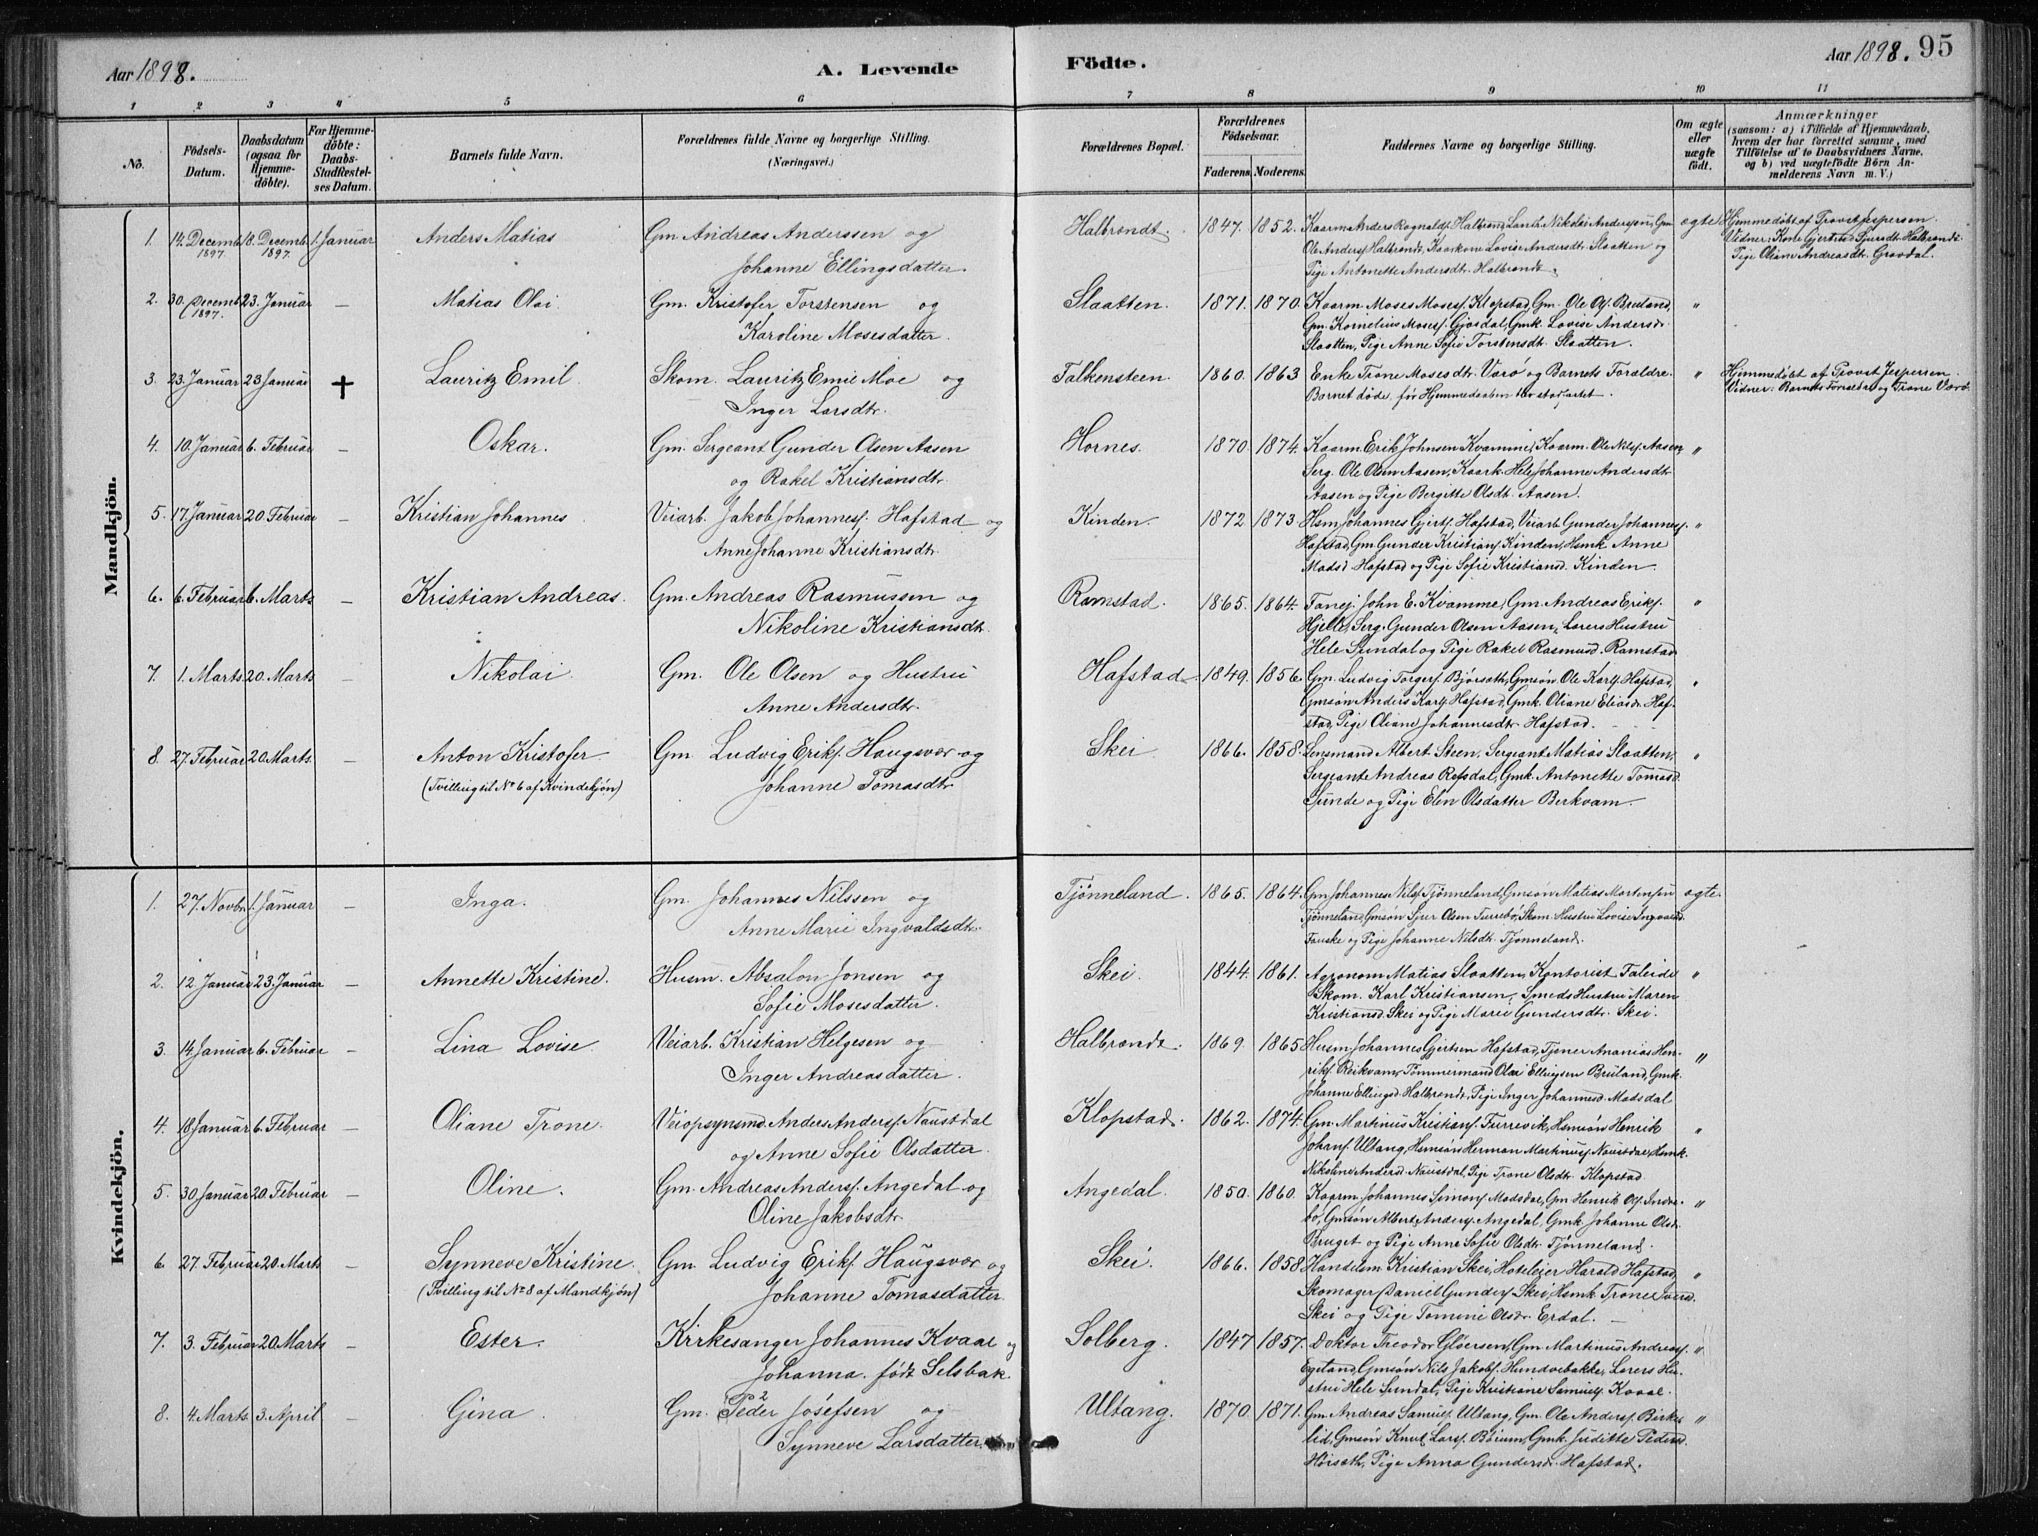 Aar 1898.
A. Levende
Födte.
Aar 1898. 95
1 2 3 4 5 6 7 8 9 10 11
No.
Födsels-
Datum.
Daabsdatum
(ogsaa for
Hjemme-
döbte).
For Hjemme-
döbte:
Daabs-
Stadfæstel-
ses Datum.
Barnets fulde Navn.
Forældrenes fulde Navne og borgerlige Stilling.
(Næringsvei.)
Forældrenes Bopæl.
Forældrenes
Födselsaar.
Faderens. Moderens.
Faddernes Navne og borgerlige Stilling.
Om ægte
eller
uægte
födt.
Anmærkninger
(saasom: a) i Tilfælde af Hjemmedaab,
hvem der har forrettet samme, med
Tilföielse af to Daabsvidners Navne,
og b) ved uægtefödte Börn An-
melderens Navn m. V.)
Mandkjön.
1. 14. Decemb. 18. Decemb. 1. Januar Anders Matias Gm. Andreas Anderssen og Halbrendt. 1847. 1852. ægte Hjemmedøbt af Provst Jespersen.
1897. 1897. Johanne Ellingsdatter
Pige Antonette Andersdt. Halbrendt.
2. 30. Decemb. 23. Januar — Matias Olai Gm. Kristofer Torstensen og Slaatten. 1871. 1870. Kaarm. Moses Moses. Klopstad, Gm. Ole Ols. Bruland, "
1897. Karoline Mosesdatter. Gm. Kornelius Moses. Gjosdal, Gmk. Lovise Andersdt.
Slaatten, Pige Anne Sofie Torstensdt. Slaatten.
3. 23. Januar 23 Januar + Lauritz Emil. Skom. Lauritz Emil Moe og Falkensteen. 1860. 1863 Enke Trone Mosesdt. Varø og Barnets Forældre. " Hjemmedøbt af Provst Jespersen.
Inger Larsdtr. Barnet døde, før Hjemmedaaben blev stadfæstet. Vidner: Barnets Forældre og Trone Værø.
4. 10. Januar 6. Februar — Oskar. Gm. Sergeant Gunder Olsen Aasen Hornes. 1870. 1874. Kaarm. Erik Johnsen Kvamme, Kaarm. Ole Nils. Aasen "
og Rakel Kristiansdtr. Serg. Ole Olsen Aasen, Kaark. Hele Johanne Andersdt.
Aasen og Pige Bergitte Olsdt. Aasen.
5. 17. Januar 20. Februar — Kristian Johannes Veiarb. Jakob Johannes. Hafstad og Kinden. 1872 1873. Hsm. Johannes Gjerts. Hafstad, Veiarb. Gunder Johannes. "
Anne Johanne Kristiansdtr. Hafstad, Gm. Gunder Kristians. Kinden, Hsmk. Anne
Madsd. Hafstad og Pige Sofie Kristiansd. Kinden.
6. 6. Februar 6. Marts — Kristian Andreas. Gm. Andreas Rasmussen og Ramstad. 1865. 1864. Fanej. John E. Kvamme, Gm. Andreas Eriks. "
Nikoline Kristiansdt. Hjelle, Serg. Gunder Olsen Aasen, Lærers Hustru
Hele Sundal og Pige Rakel Rasmusd. Ramstad
7. 1. Marts 20. Marts — Nikolai Gm. Ole Olsen og Hustru Hafstad 1849. 1856. Gm. Ludvig Torgers. Bjørseth, Gmsøn Ole Karls. Hafstad, "
Anne Andersdtr. Gmsøn Anders Karls. Hafstad, Gmk. Oliane Eliasdt. Haf-
stad, Pige Oliane Johannesdtr. Hafstad.
8. 27. Februar 20. Marts. — Anton Kristofer Gm Ludvig Eriks. Haugsvær og Skei 1866. 1858. Lensmand Albert Steen, Sergeant Matias Slaatten, "
(Tvilling til No 6 af Kvindekjøn) Johanne Tomasdtr. Sergeant Andreas Refsdal, Gmk. Antonette Tomasd.
Sunde og Pige Elen Olsdatter Berkvam.
Kvindekjön.
1. 27. Novbr. 1. Januar — Inga. Gm. Johannes Nilssen og Tjønneland. 1865. 1864. Gm. Johannes Nils. Tjønneland, Gmsøn Matias Martensen ægte.
Anne Marie Ingvaldsdtr. Tjønneland, Gmsøn Sjur Olsen Furebø, Skom. Hustru Lovise Ingvaldsd.
Fauske og Pige Johanne Nilsdtr. Tjønneland.
2. 12. Januar 23. Januar — Annette Kristine. Husm. Absalon Jonsen og Skei. 1844. 1861. Agronom Matias Slaatten, Kontorist Faleide "
Sofie Mosesdatter. Skom. Karl Kristiansen, Smeds Hustru Maren
Kristiansd. Skei og Pige Marie Gundersdtr. Skei.
3. 14. Januar 6. Februar — Lina Lovise. Veiarb. Kristian Helgesen og Halbrendt. 1869. 1865 Husm. Johannes Gjertsen Hafstad, Tjener Ananias Hen- "
Inger Andreasdatter. riks. Reiksvam, Tømmermand Olai Ellingsen Bruland, Gmk.
Johanne Ellingsd. Halbrendt, Pige Inger Johannesd. Madsdal
4. 18. Januar 6. Februar — Oliane Trone. Veiopsynsmd. Anders Anders. Naustdal Klopstad. 1862. 1874. Gm. Martinus Kristians. Furevik, Hsmsøn Henrik "
og Anne Sofie Olsdatter. Johans. Ultang, Hsmsøn Herman Martinus. Naustdal, Hsmk.
Nikoline Andersd. Naustdal, Pige Trone Olsdtr. Klopstad
5. 30. Januar 20. Februar — Oline. Gm. Andreas Anders. Angedal og Angedal. 1850. 1860. Kaarm. Johannes Simons. Madsdal, Gm. Henrik Ols. Indre- "
Oline Jakobsdtr. bø, Gmsøn Albert Anders. Angedal, Gmk. Johanne Olsdtr.
Bruget og Pige Anne Sofie Olsdtr. Tjønneland.
6. 27. Februar 20. Marts — Synneve Kristine Gm. Ludvig Eriks. Haugsvær og Skei 1866. 1858. Handelsm. Kristian Skei, Hoteleier Harald Hafstad, "
(Tvilling til No 8 af Mandkjøn) Johanne Tomasdatter. Skomager Daniel Gunders. Skei, Hsmk. Trone Iversd.
Skei og Pige Tomine Olsdr. Erdal.
7. 3. Februar 20. Marts — Ester. Kirkesanger Johannes Kvaal og Solberg. 1847 1857. Doktor Theodor Gløersen, Gm. Martinus Andreas. "
Johanna født Selsbak. Egeland, Gmsøn Nils Jakobs. Hundvebakke, Lærers Hu-
stru Hele Sundal, Pige Kristiane Samuels. Kvaal.
8. 4. Marts 3. April — Gina. Gm. Peder Josefsen og Ultang. 1870. 1871. Gm. Andreas Samuels. Ultang, Gm. Ole Anders. Birke- "
Synneve Larsdatter. lid, Gmsøn Knut Lars. Børium, Gmk. Juditte Pedersd.
Høiseth, Pige Anna Gundersd. Hafstad.